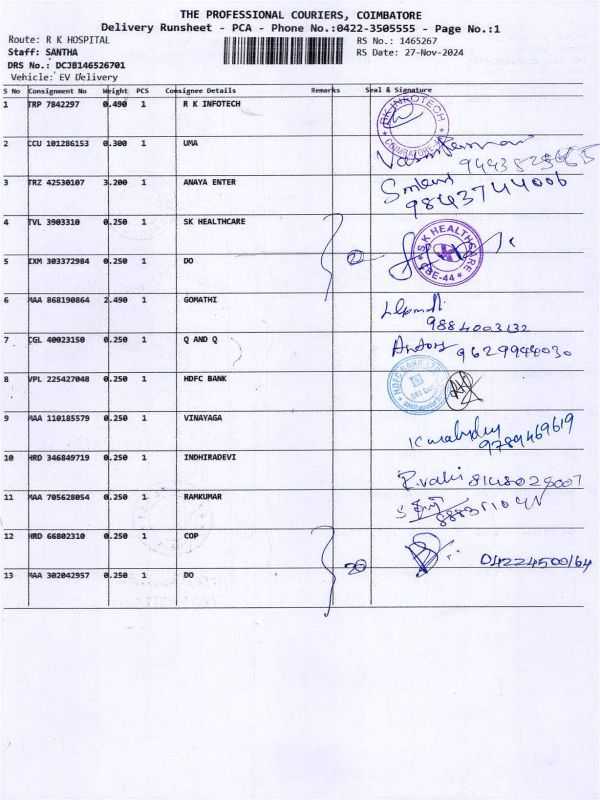 THE PROFESSIONAL COURIERS, COIMBATORE
Delivery Runsheet - PCA - Phone No.:0422-3505555 - Page No.:1
Route: R K HOSPITAL RS No.: 1465267
Staff: SANTHA RS Date: 27-Nov-2024
DRS No.: DCJB146526701
Vehicle: EV Delivery
S No Consignment No Weight PCS Consignee Details Remarks Seal & Signature
1 TRP 7842297 0.490 1 R K INFOTECH RK INFOTECH COIMBATORE-44
2 CCU 101286153 0.300 1 UMA
3 TRZ 42530107 3.200 1 ANAYA ENTER 9843744006
4 TVL 3903310 0.250 1 SK HEALTHCARE SK HEALTHCARE CBE-44
5 IXM 303372984 0.250 1 DO
6 MAA 868190864 2.490 1 GOMATHI 9884003132
7 CGL 40023150 0.250 1 Q AND Q 9629944030
8 VPL 225427048 0.250 1 HDFC BANK HDFC BANK LTD
9 MAA 110185579 0.250 1 VINAYAGA 9789469619
10 HRD 346849719 0.250 1 INDHIRADEVI R.vahi 8148029007
11 MAA 705628054 0.250 1 RAMKUMAR
12 HRD 66802310 0.250 1 COP 04224500164
13 MAA 302042957 0.250 1 DO